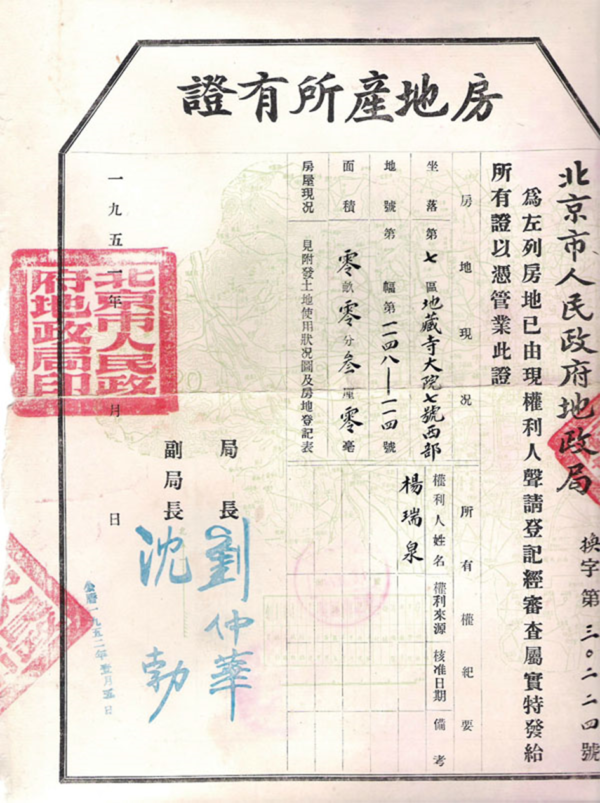 房地產所有證
北京市人民政府地政局
換字第三〇二二四號
為左列房地已由現權利人聲請登記經審查屬實特發給
所有證以憑管業此證
房地現況
所有權紀要
坐落
第七區地藏寺大院七號西部
地號
第 幅第二四八—二一四號
面積
零畝零分叁厘零毫
房屋現況
見附發土地使用狀况圖及房地登記表
權利人姓名
權利來源
核准日期
備考
楊瑞泉
局長
劉仲華
副局長
沈勃
一九五一年 月 日
北京市人民政
府地政局印